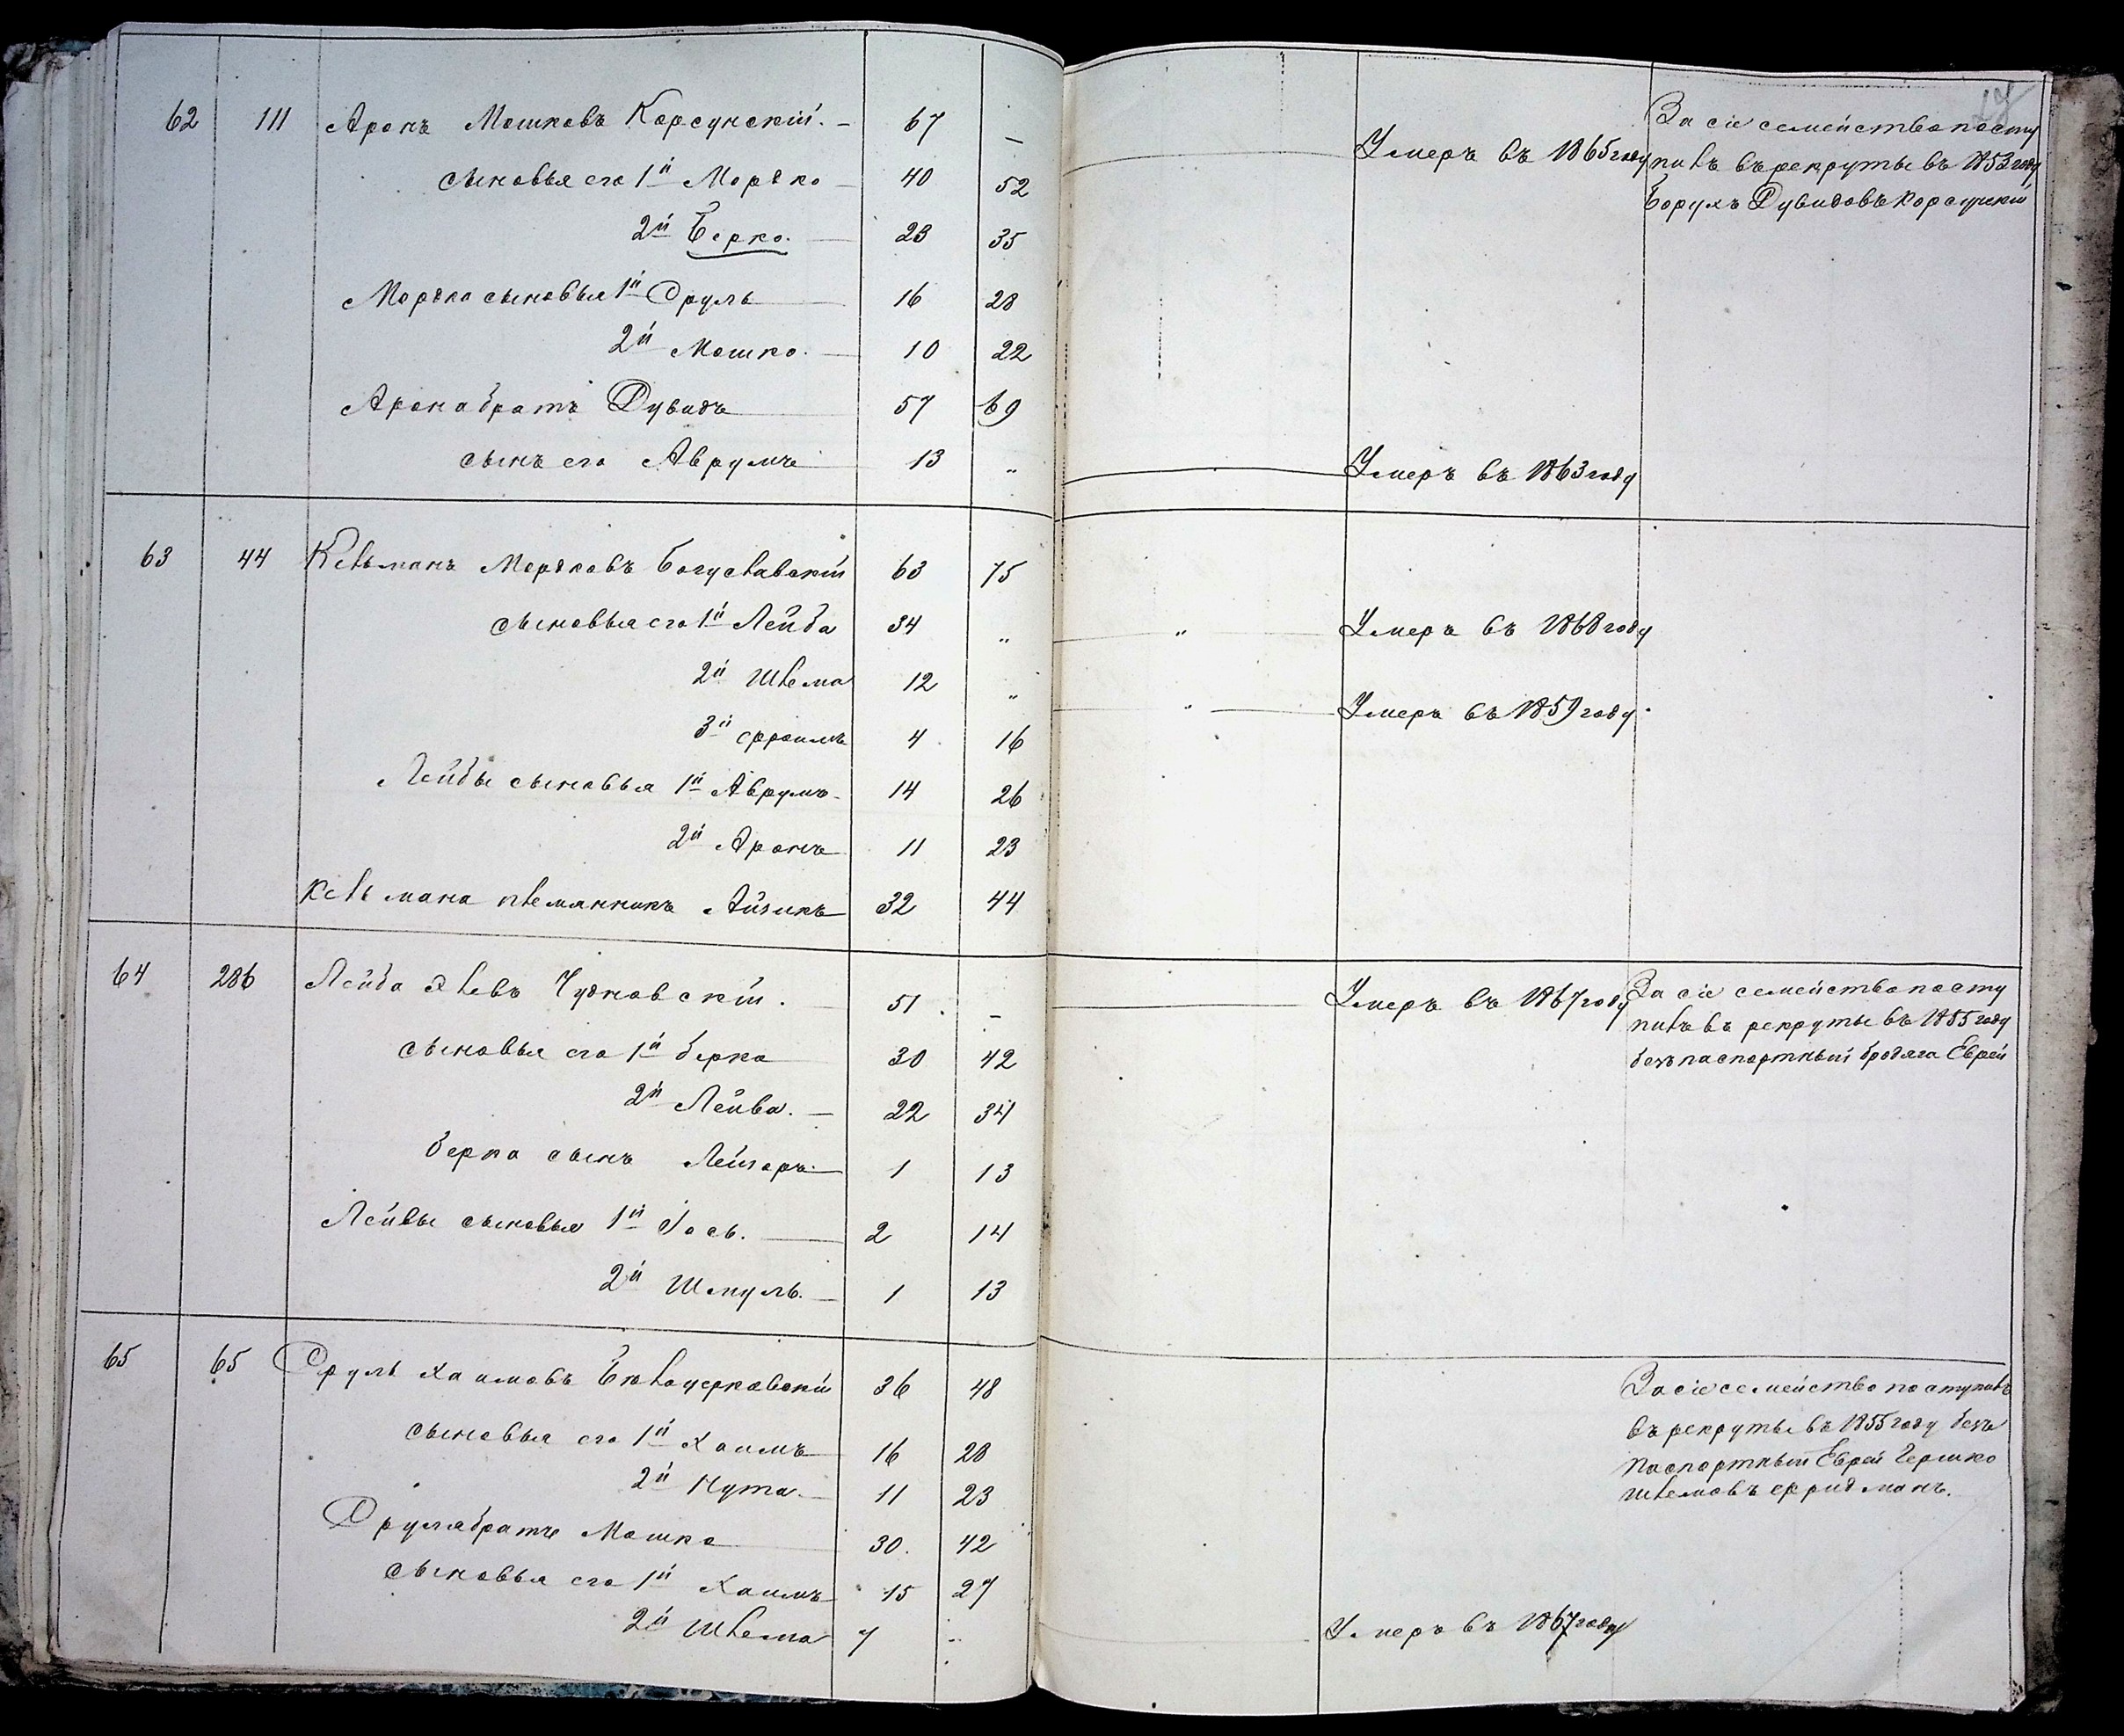 62 111 Аронъ Мошковъ Корсунскій. – 67 – Умеръ въ 1865 году
сыновья его 1й Мордко 40 52
2й Берко. 23 35
Мордка сыновья 1й Сруль 16 28
2й Мошко. 10 22
Арона братъ Дувидъ 57 69
сынъ его Аврумъ 13 „ Умеръ въ 1863 году
За сіе семейство посту
пилъ въ рекруты въ 1853 году
Борухъ Дувидовъ Корсунскій
63 44 Кельманъ Мордковъ Богуславскій 63 75
сыновья его 1й Лейба 34 „ „ Умеръ въ 1868 году
2й Шлема 12 „ „ Умеръ въ 1859 году.
3й Фроимъ 4 16
Лейбы сыновья 1й Аврумъ 14 26
2й Аронъ 11 23
Кельмана племянникъ Айзикъ 32 44
64 286 Лейба Чудновскій. 51 – Умеръ въ 1867 году
сыновья его 1й Берко 30 42
2й Лейва. – 22 34
Берка сынъ Лейзеръ 1 13
Лейвы сыновья 1й Іось. 2 14
2й Шмуль. – 1 13
За сіе семейство посту
пилъ въ рекруты въ 1855 году
безпаспортный бродяга Еврей
65 65 Сруль Хаимовъ Бѣлоцерковскій 36 48
сыновья его 1й Хаимъ 16 28
2й Нута. 11 23
Сруля братъ Мошко 30. 42
сыновья его 1й Хаимъ 15 27
2й Шлема 7 „ Умеръ въ 1867 году
За сіе семейство поступилъ
въ рекруты въ 1855 году безъ
паспортный Еврей Гершко
Шлемовъ Фридманъ.